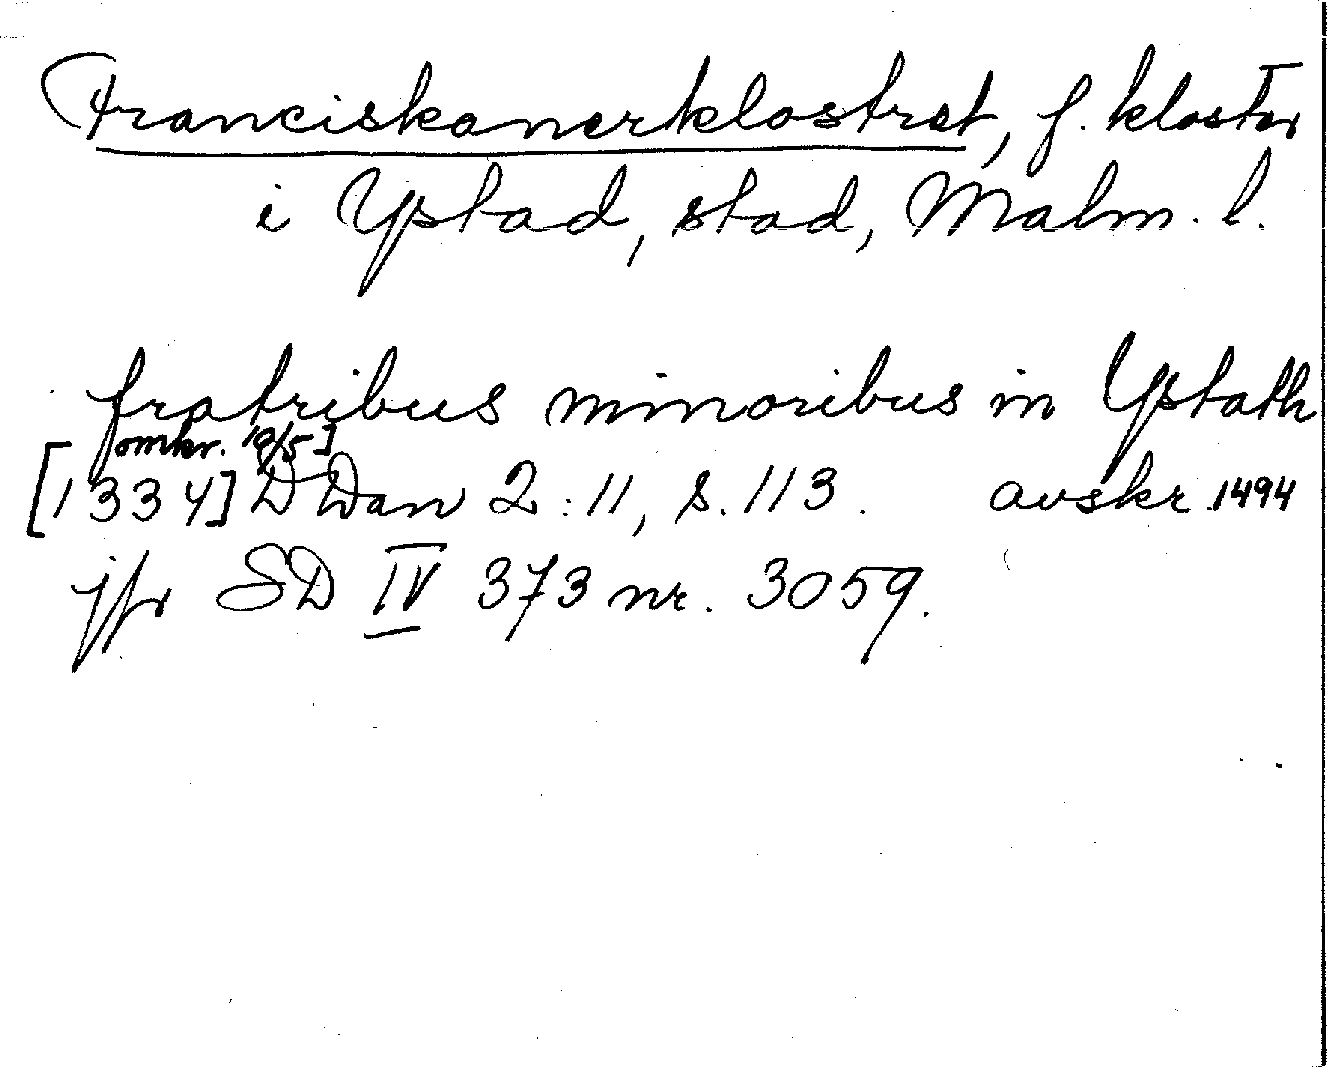 Franciskanerklostret, f. kloster
i Ystad, stad, Malm. l.
fratribus minoribus in Ystath
omkr. 19/5]
[1334] DDan 2:11, s. 113. avskr. 1494
jfr SD IV 373 nr. 3059.